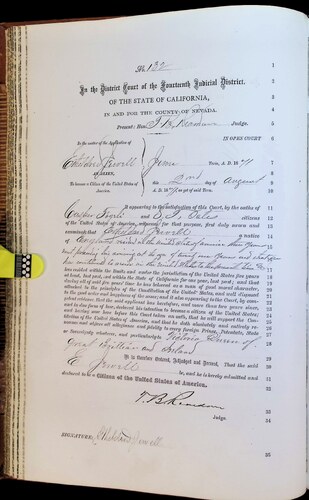 No. 132
In the District Court of the Fourteenth Judicial District.
OF THE STATE OF CALIFORNIA,
IN AND FOR THE COUNTY OF NEVADA.
Present: Hon. T. B. Reardan Judge.
IN OPEN COURT
In the matter of the Application of
Jewell June Term, A. D. 1871
AN ALIEN,
this day of August
To become a Citizen of the United States of America.
A. D. 1871, as yet of said Term.
It appearing to the satisfaction of this Court, by the oaths of
and citizens
of the United States of America, witnesses for that purpose, first duly sworn and
examined that Jewell a native
of England
has resided within the limits and under the jurisdiction of the United States five years
at least, last past, and within the State of California for one year, last past; and that
during all of said five years' time he has behaved as a man of good moral character,
attached to the principles of the Constitution of the United States, and well disposed
to the good order and happiness of the same; and it also appearing to the Court, by
petent evidence, that the said applicant has heretofore, and more than two years since,
and in due form of law, declared his intention to become a citizen of the United States,
and having now here before this Court taken an oath, that he will support the Consti-
tution of the United States of America, and that he doth absolutely and entirely re-
nounce and abjure all allegiance and fidelity to every foreign Prince, Potentate, State
or Sovereignty whatever, and particularly to Victoria Queen of
Great Brittian and Ireland
It is therefore Ordered, Adjudged and Decreed, That the said
E Jewell be, and he is hereby admitted and
declared to be a Citizen of the United States of America.
T. B. Reardan
Judge.
SIGNATURE: Jewell
1
2
3
4
5
6
7
8
9
10
11
12
13
14
15
16
17
18
19
20
21
22
23
24
25
26
27
28
29
30
31
32
33
34
35